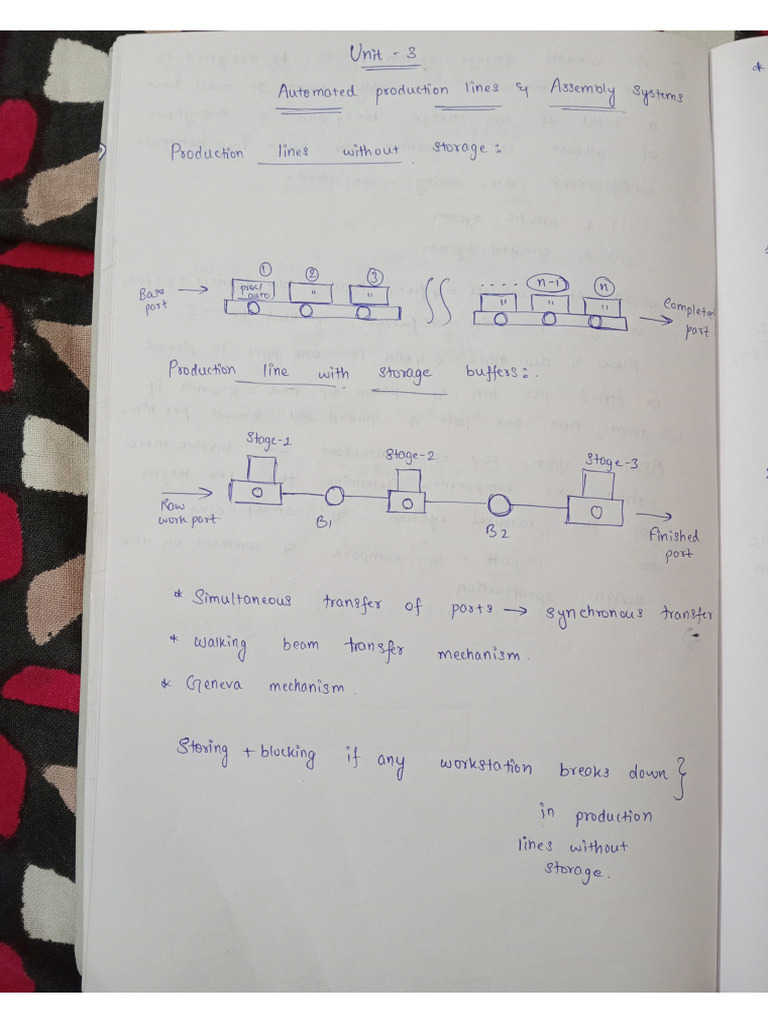 Unit - 3
Automated production lines & Assembly systems
Production lines without storage:
① ② ③ ..... n-1 n
Base part
proc/auto " " " " "
Completed part
Production line with storage buffers:
Stage-1 Stage-2 Stage-3
Raw work part
B1
B2
Finished part
* Simultaneous transfer of parts → synchronous transfer
* Walking beam transfer mechanism.
* Geneva mechanism.
Storing + blocking if any workstation breaks down }
in production
lines without
storage.